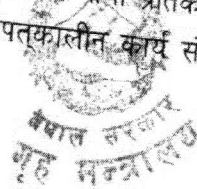 पत्कालीन कार्य सं
नेपाल सरकार
गृह मन्त्रालय